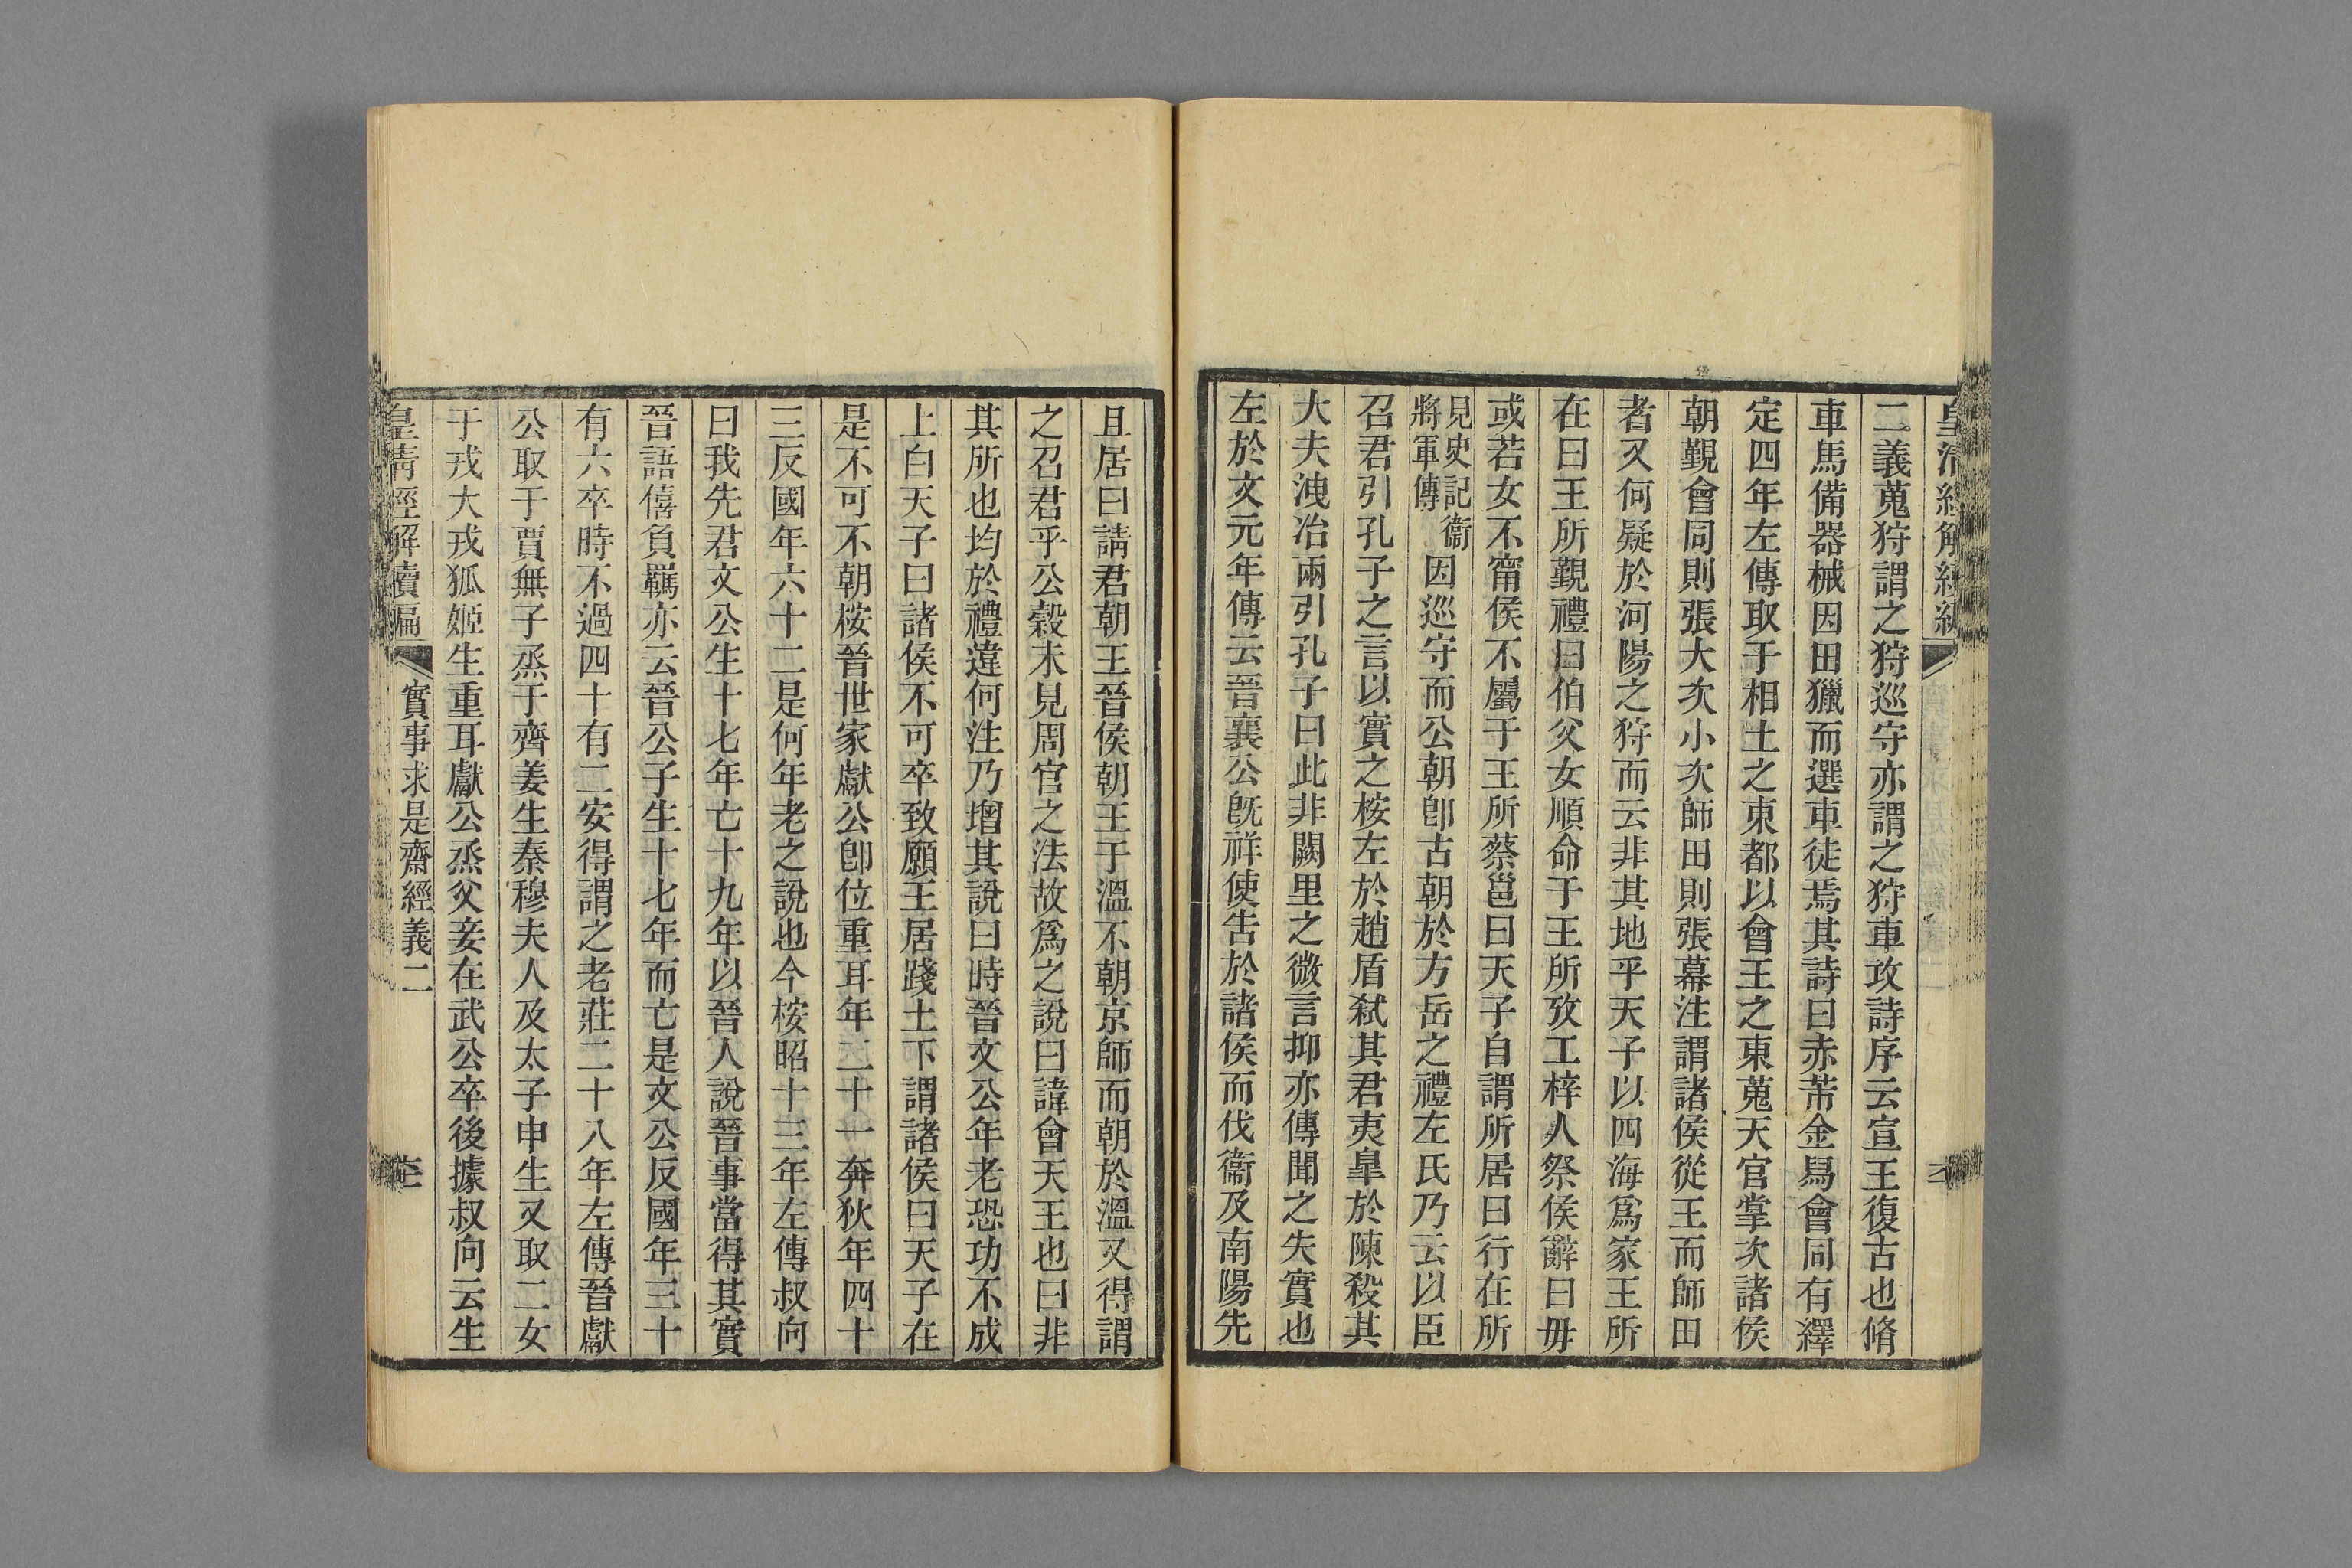 皇清經解續編
二義蒐狩謂之狩巡守亦謂之狩車攻詩序云宣王復古也脩
車馬備器械因田獵而選車徒焉其詩曰赤芾金舄會同有繹
定四年左傳取于相土之東都以會王之東蒐天官掌次諸侯
朝覲會同則張大次小次師田則張幕注謂諸侯從王而師田
者又何疑於河陽之狩而云非其地乎天子以四海爲家王所
在曰王所覲禮曰伯父女順命于王所攷工梓人祭侯辭曰毋
或若女不甯侯不屬于王所蔡邕曰天子自謂所居曰行在所
見史記衞將軍傳因巡守而公朝卽古朝於方岳之禮左氏乃云以臣
召君引孔子之言以實之桉左於趙盾弒其君夷臯於陳殺其
大夫洩冶兩引孔子曰此非闕里之微言抑亦傳聞之失實也
左於文元年傳云晉襄公旣祥使告於諸侯而伐衞及南陽先
且居曰請君朝王晉侯朝王于溫不朝京師而朝於溫又得謂
之召君乎公穀未見周官之法故爲之說曰諱會天王也曰非
其所也均於禮違何注乃增其說曰時晉文公年老恐功不成
上白天子曰諸侯不可卒致願王居踐土下謂諸侯曰天子在
是不可不朝桉晉世家獻公卽位重耳年二十一奔狄年四十
三反國年六十二是何年老之說也今桉昭十三年左傳叔向
曰我先君文公生十七年亡十九年以晉人說晉事當得其實
晉語僖負羈亦云晉公子生十七年而亡是文公反國年三十
有六卒時不過四十有二安得謂之老莊二十八年左傳晉獻
公取于賈無子烝于齊姜生秦穆夫人及太子申生又取二女
于戎大戎狐姬生重耳獻公烝父妾在武公卒後據叔向云生
皇淸經解續編 實事求是齋經義二